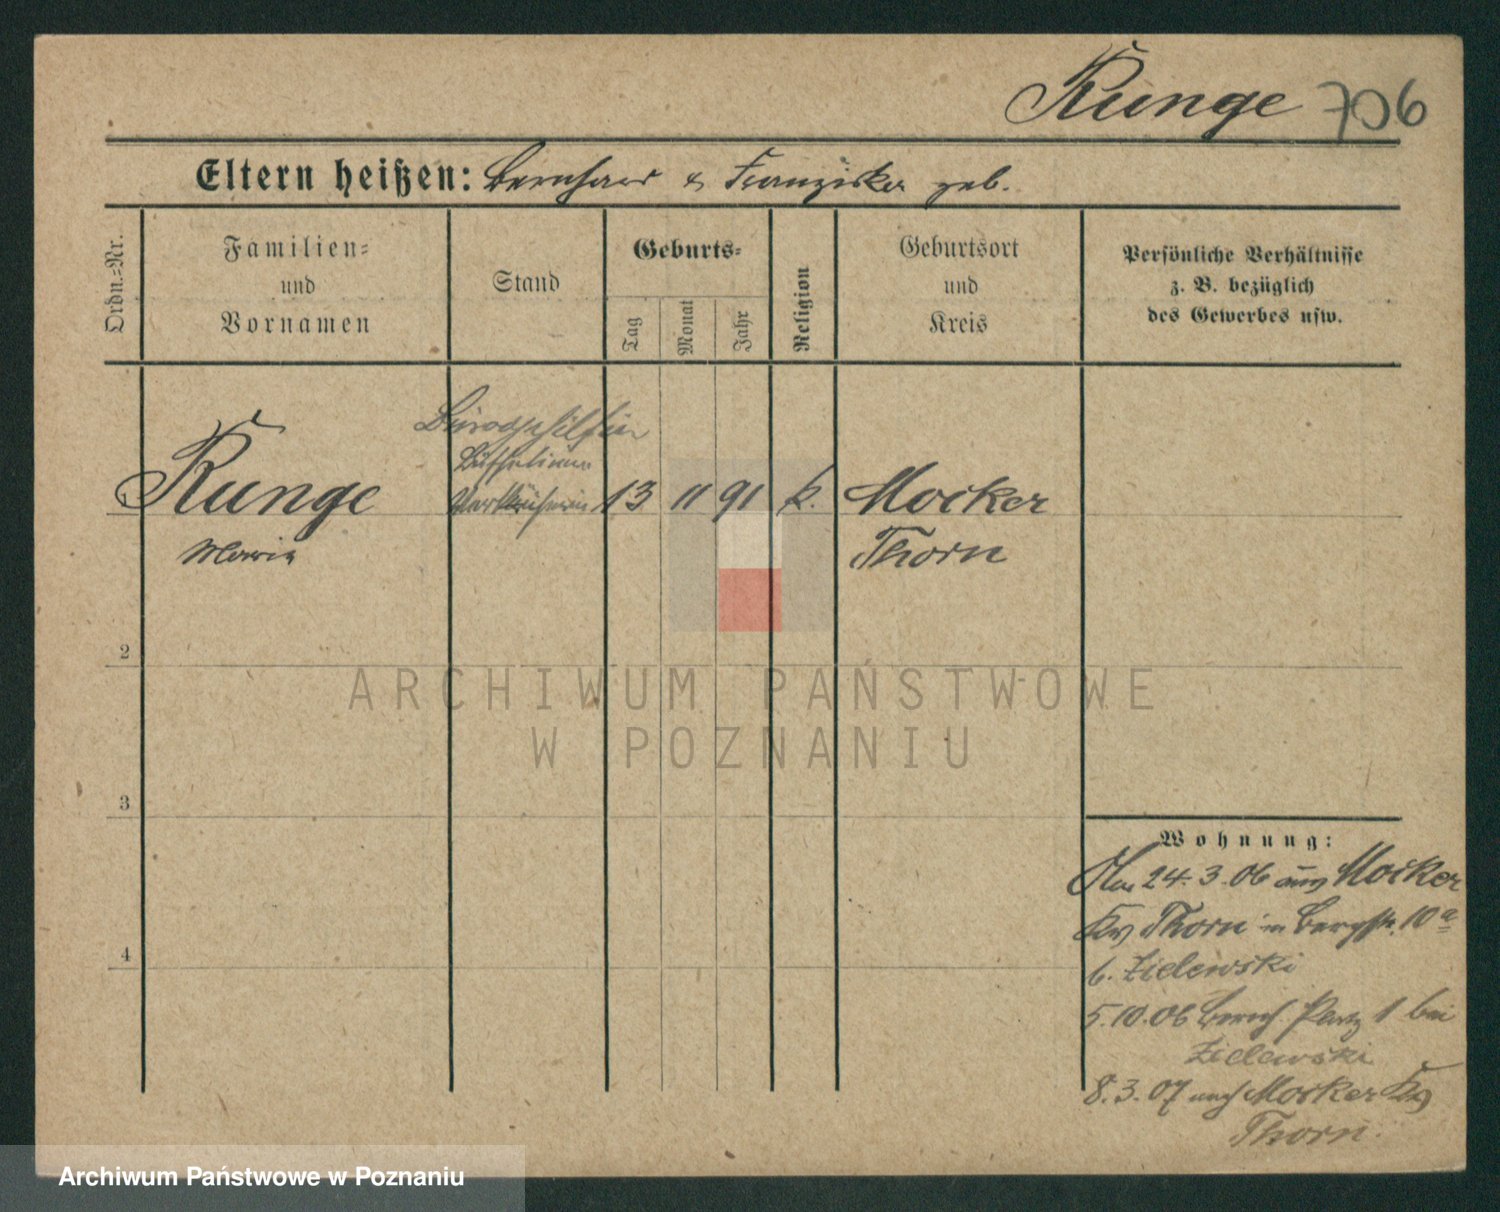 Runge 706
Eltern heißen: Bernhard & Franziska geb.
Ordn.=Nr.
Familien=
und
Vornamen
Stand
Geburts=
Tag
Monat
Jahr
Religion
Geburtsort
und
Kreis
Persönliche Verhältnisse
z. B. bezüglich
des Gewerbes usw.
Bürogehilfin
Verkäuferin
1 Runge 13 11 91 k. Mocker
Maria Thorn
2
ARCHIWUM PAŃSTWOWE
W POZNANIU
3
4
Wohnung:
24.3.06 aus Mocker
Kr Thorn in Bergstr. 10a
b. Zielewski
5.10.06 Platz 1 bei
Zielewski
8.3.07 nach Mocker Kr
Thorn.
Archiwum Państwowe w Poznaniu